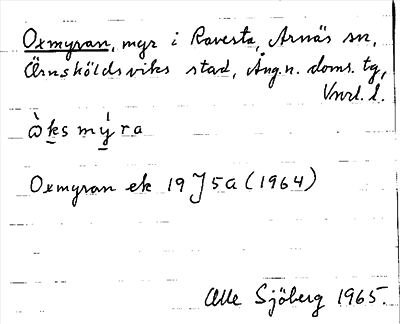 Oxmyran, myr i Ravesta, Arnäs sn,
Örnsköldsviks stad, Ång.n. doms. tg,
Vnrl. l.
òksmýra
Oxmyran ek 19 J 5a (1964)
Olle Sjöberg 1965.